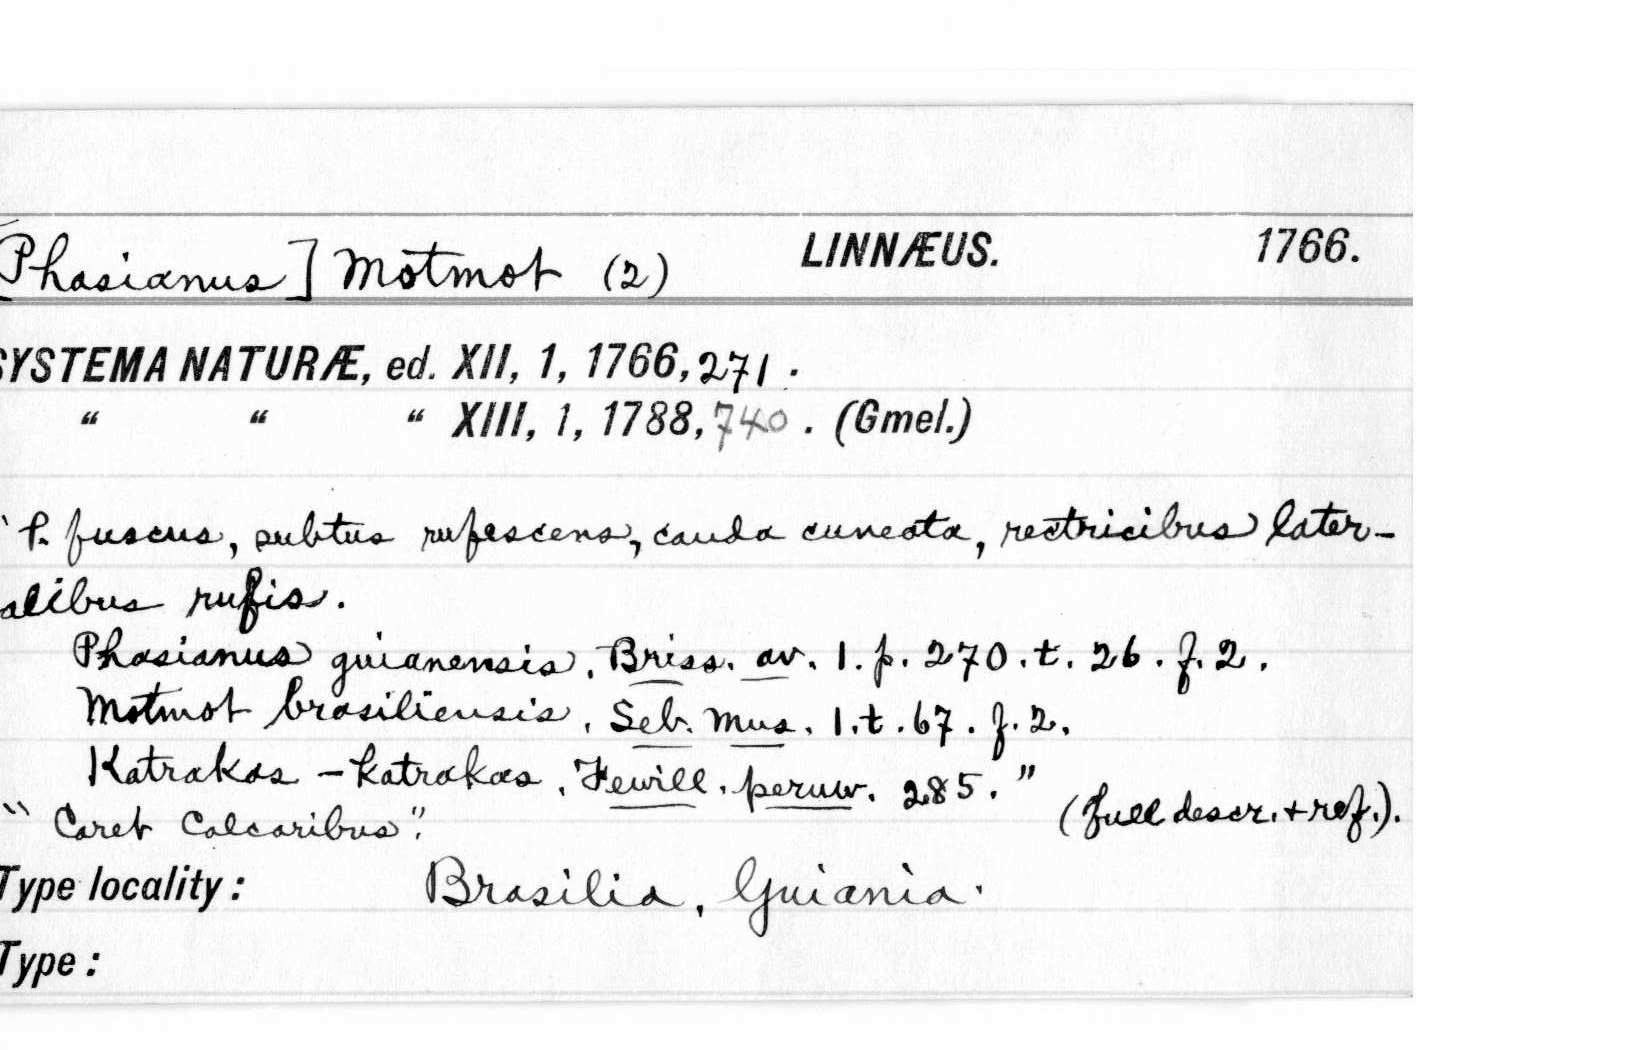 [Phasianus] Motmot (2) LINNÆUS. 1766.
SYSTEMA NATURÆ, ed. XII, 1, 1766, 271.
“ “ “ XIII, 1, 1788, 740. (Gmel.)
"P. fuscus, subtus rufescens, cauda cuneata, rectricibus later-
alibus rufis.
Phasianus guianensis. Briss. av. 1. p. 270. t. 26. f. 2.
Motmot brasiliensis. Seb. Mus. 1. t. 67. f. 2.
Katrakas - katrakas. Fewill. peruv. 285."
(full descr. + ref.).
"Caret Calcaribus".
Type locality: Brasilia, Guiania.
Type: